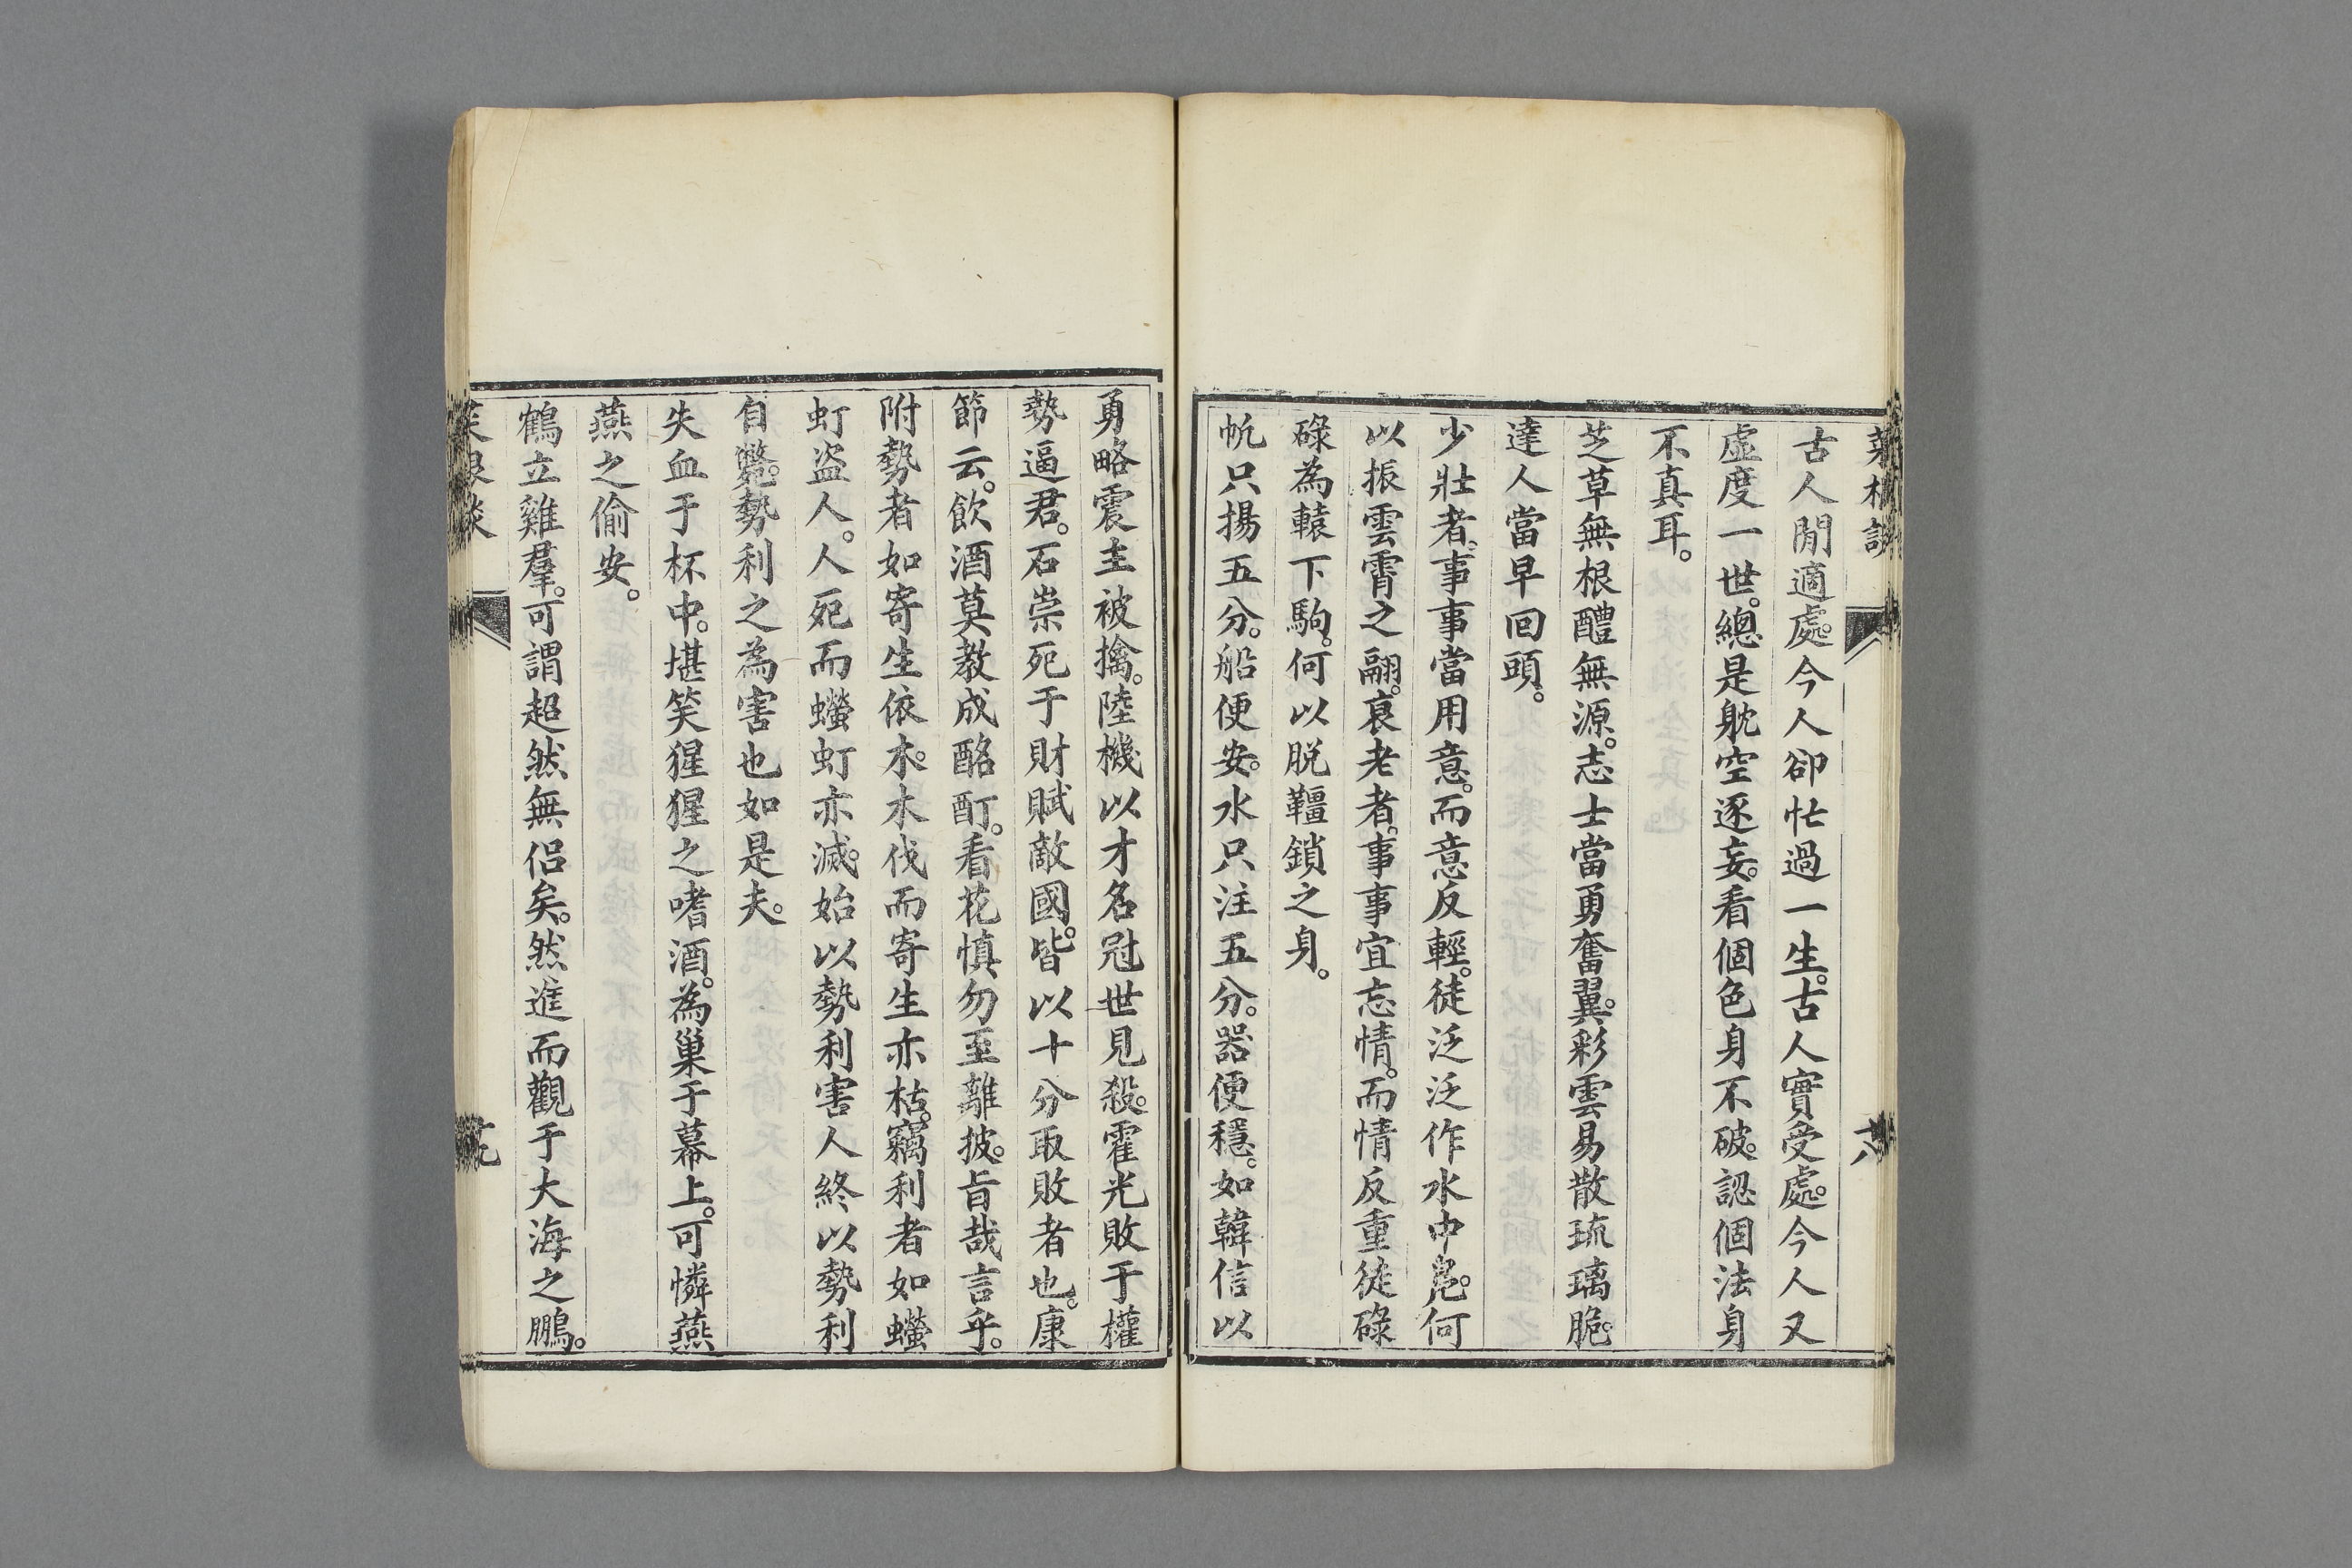 古人閒適處。今人卻忙過一生。古人實受處。今人又
虛度一世。總是躭空逐妄。看個色身不破。認個法身
不真耳。
芝草無根醴無源。志士當勇奮翼。彩雲易散琉璃脆。
達人當早回頭。
少壯者。事事當用意。而意反輕。徒泛泛作水中鳧。何
以振雲霄之翮。衰老者。事事宜忘情。而情反重。徒碌
碌為轅下駒。何以脫韁鎖之身。
帆只揚五分。船便安。水只注五分。器便穩。如韓信以
勇略震主被擒。陸機以才名冠世見殺。霍光敗于權
勢逼君。石崇死于財賦敵國。皆以十分取敗者也。康
節云。飲酒莫教成酩酊。看花慎勿至離披。旨哉言乎。
附勢者如寄生依木。木伐而寄生亦枯。竊利者如蠻
虰盜人。人死而蠻虰亦滅。始以勢利害人終以勢利
自斃。勢利之為害也如是夫。
失血于杯中。堪笑猩猩之嗜酒。為巢于幕上。可憐燕
燕之偷安。
鶴立雞羣。可謂超然無侶矣。然進而觀于大海之鵬。